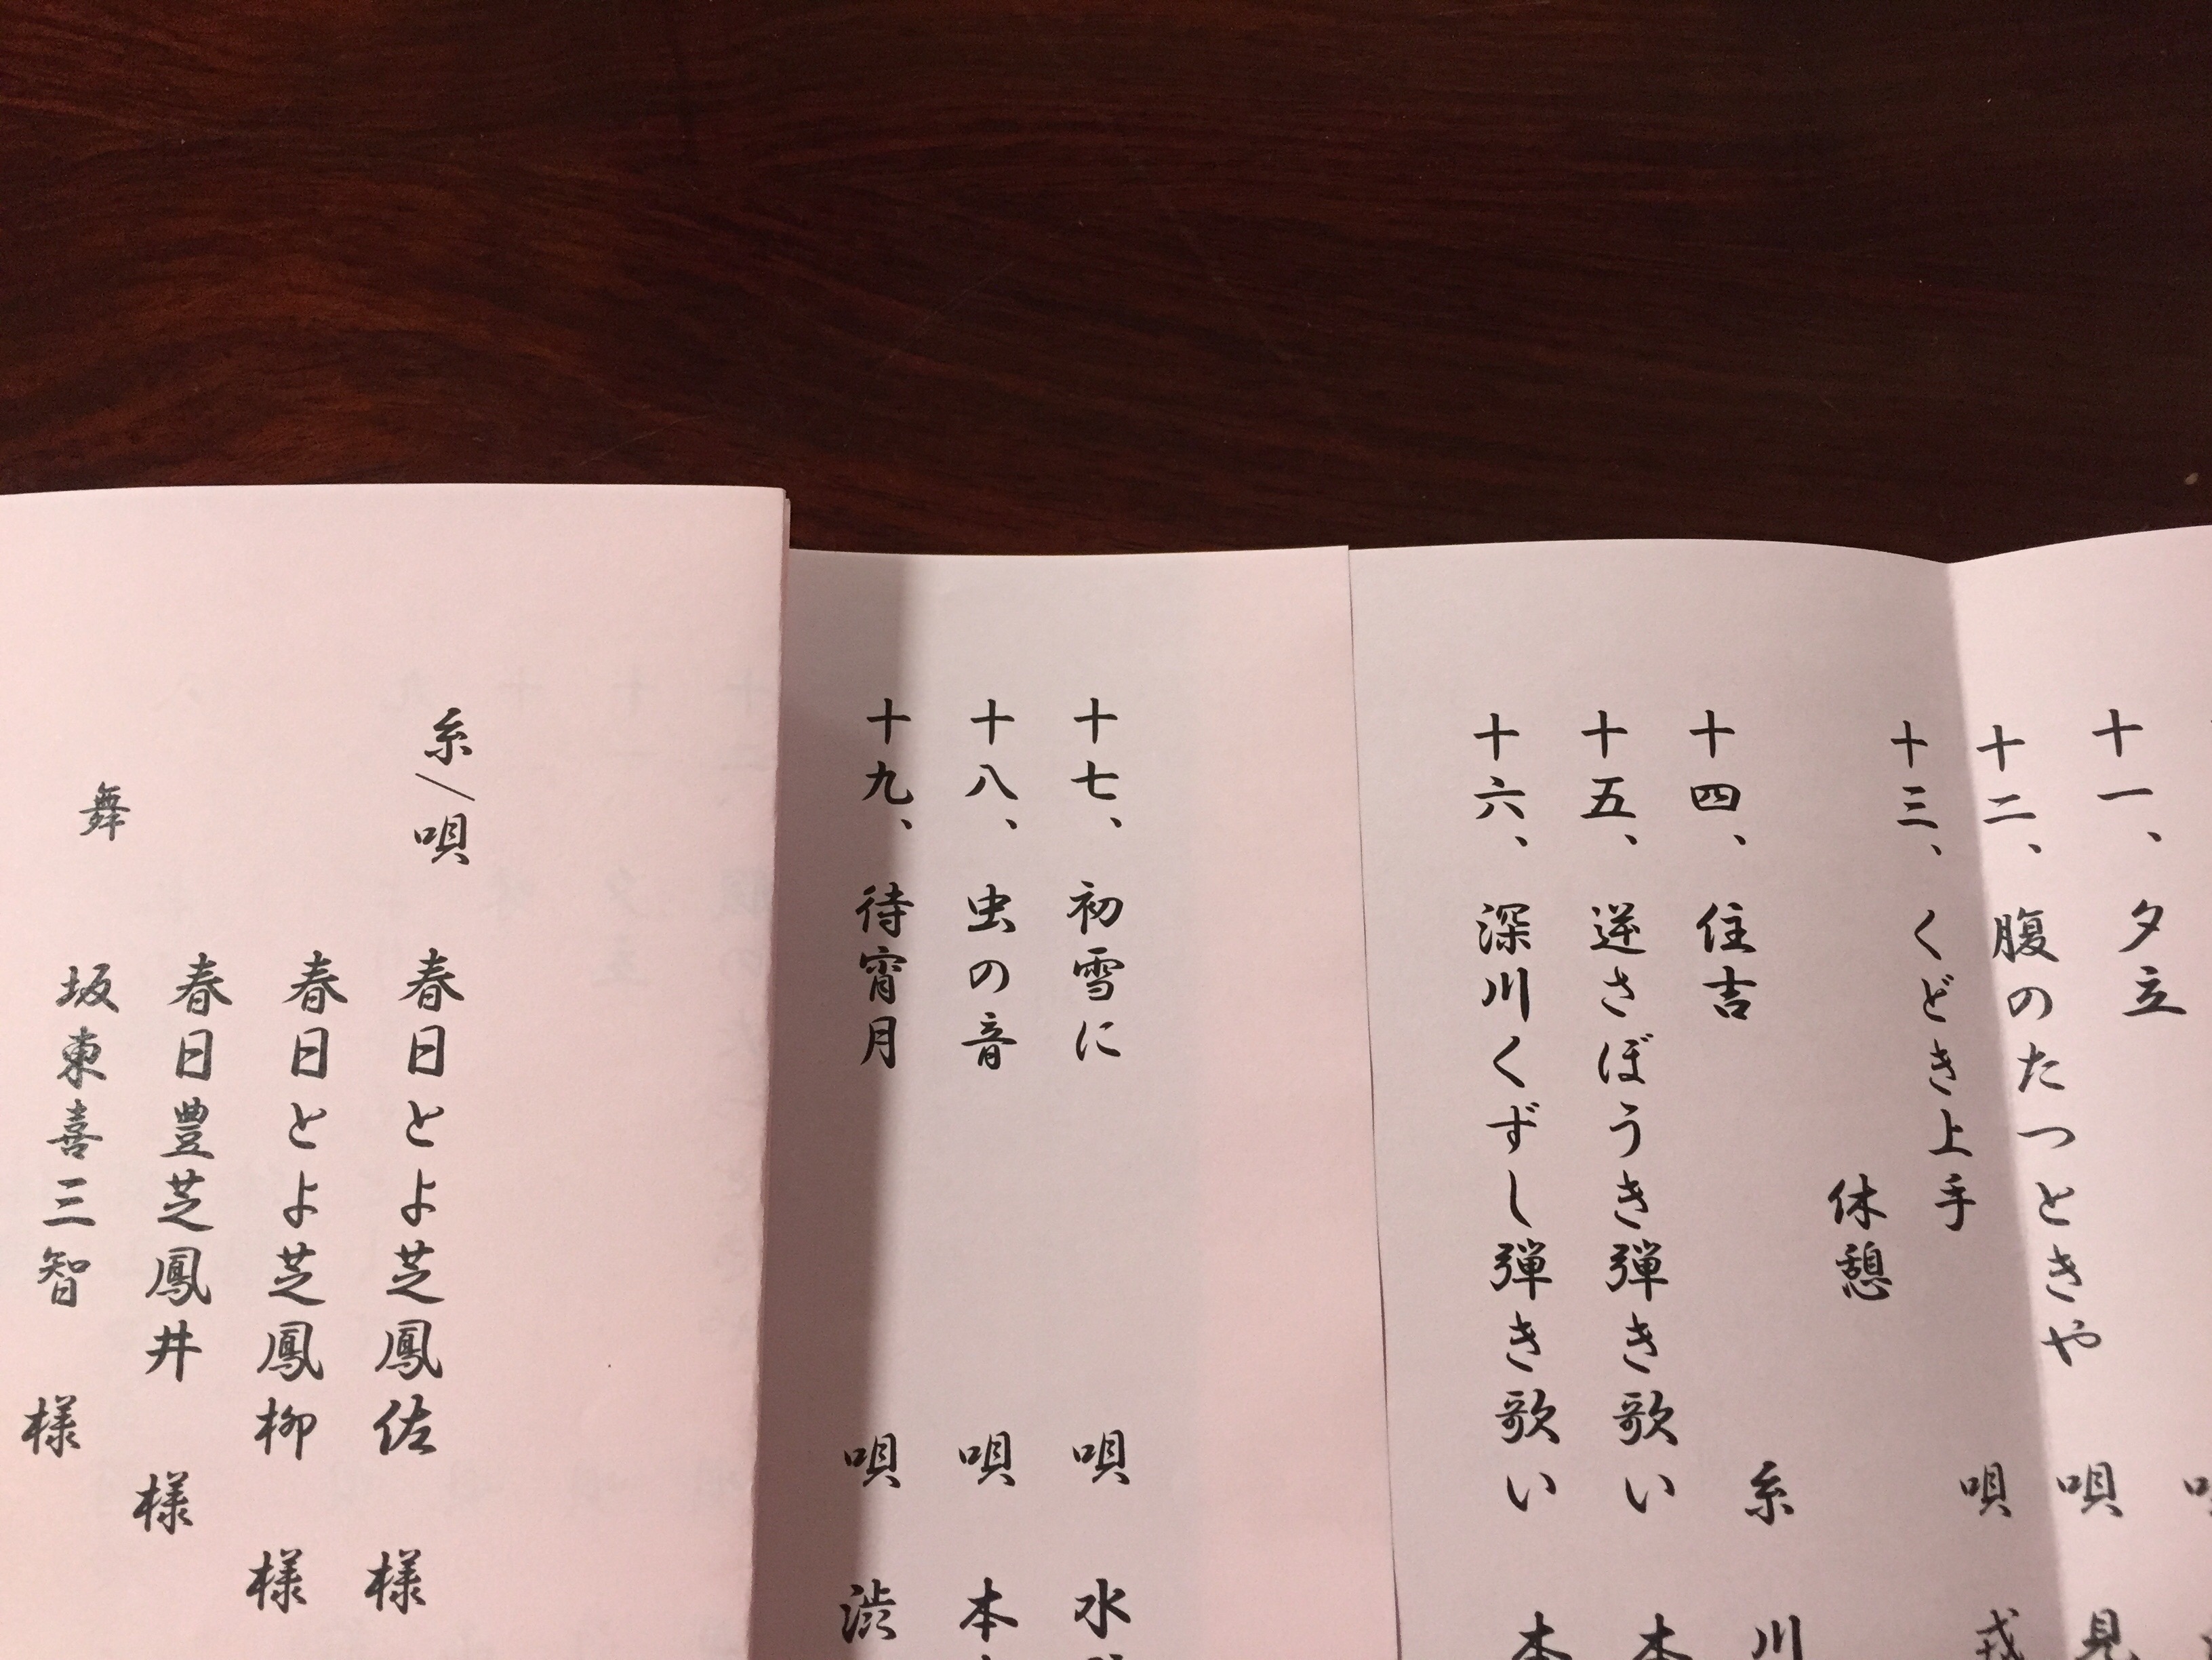 十一、夕立
十二、腹のたつときや 唄 見
十三、くどき上手 唄 戎
休憩
十四、住吉 糸 川
十五、逆さぼうき弾き歌い 本
十六、深川くずし弾き歌い 本
十七、初雪に 唄 水
十八、虫の音 唄 本
十九、待宵月 唄 渋
糸／唄 春日とよ芝鳳佐 様
春日とよ芝鳳柳 様
春日豊芝鳳井 様
舞 坂東喜三智 様